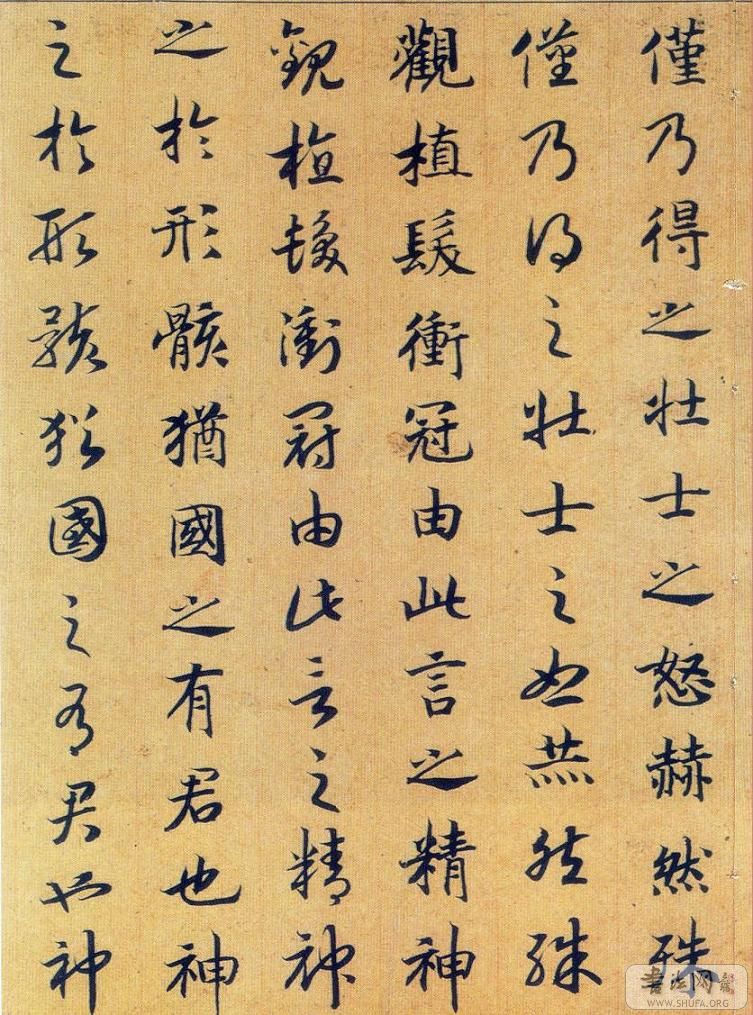 僅乃得之壯士之怒赫然殊
僅乃得之壯士之怒赫然殊
觀植髮衝冠由此言之精神
觀植髮衝冠由此言之精神
之於形骸猶國之有君也神
之於形骸猶國之有君也神
書法网
WWW.SHUFA.ORG